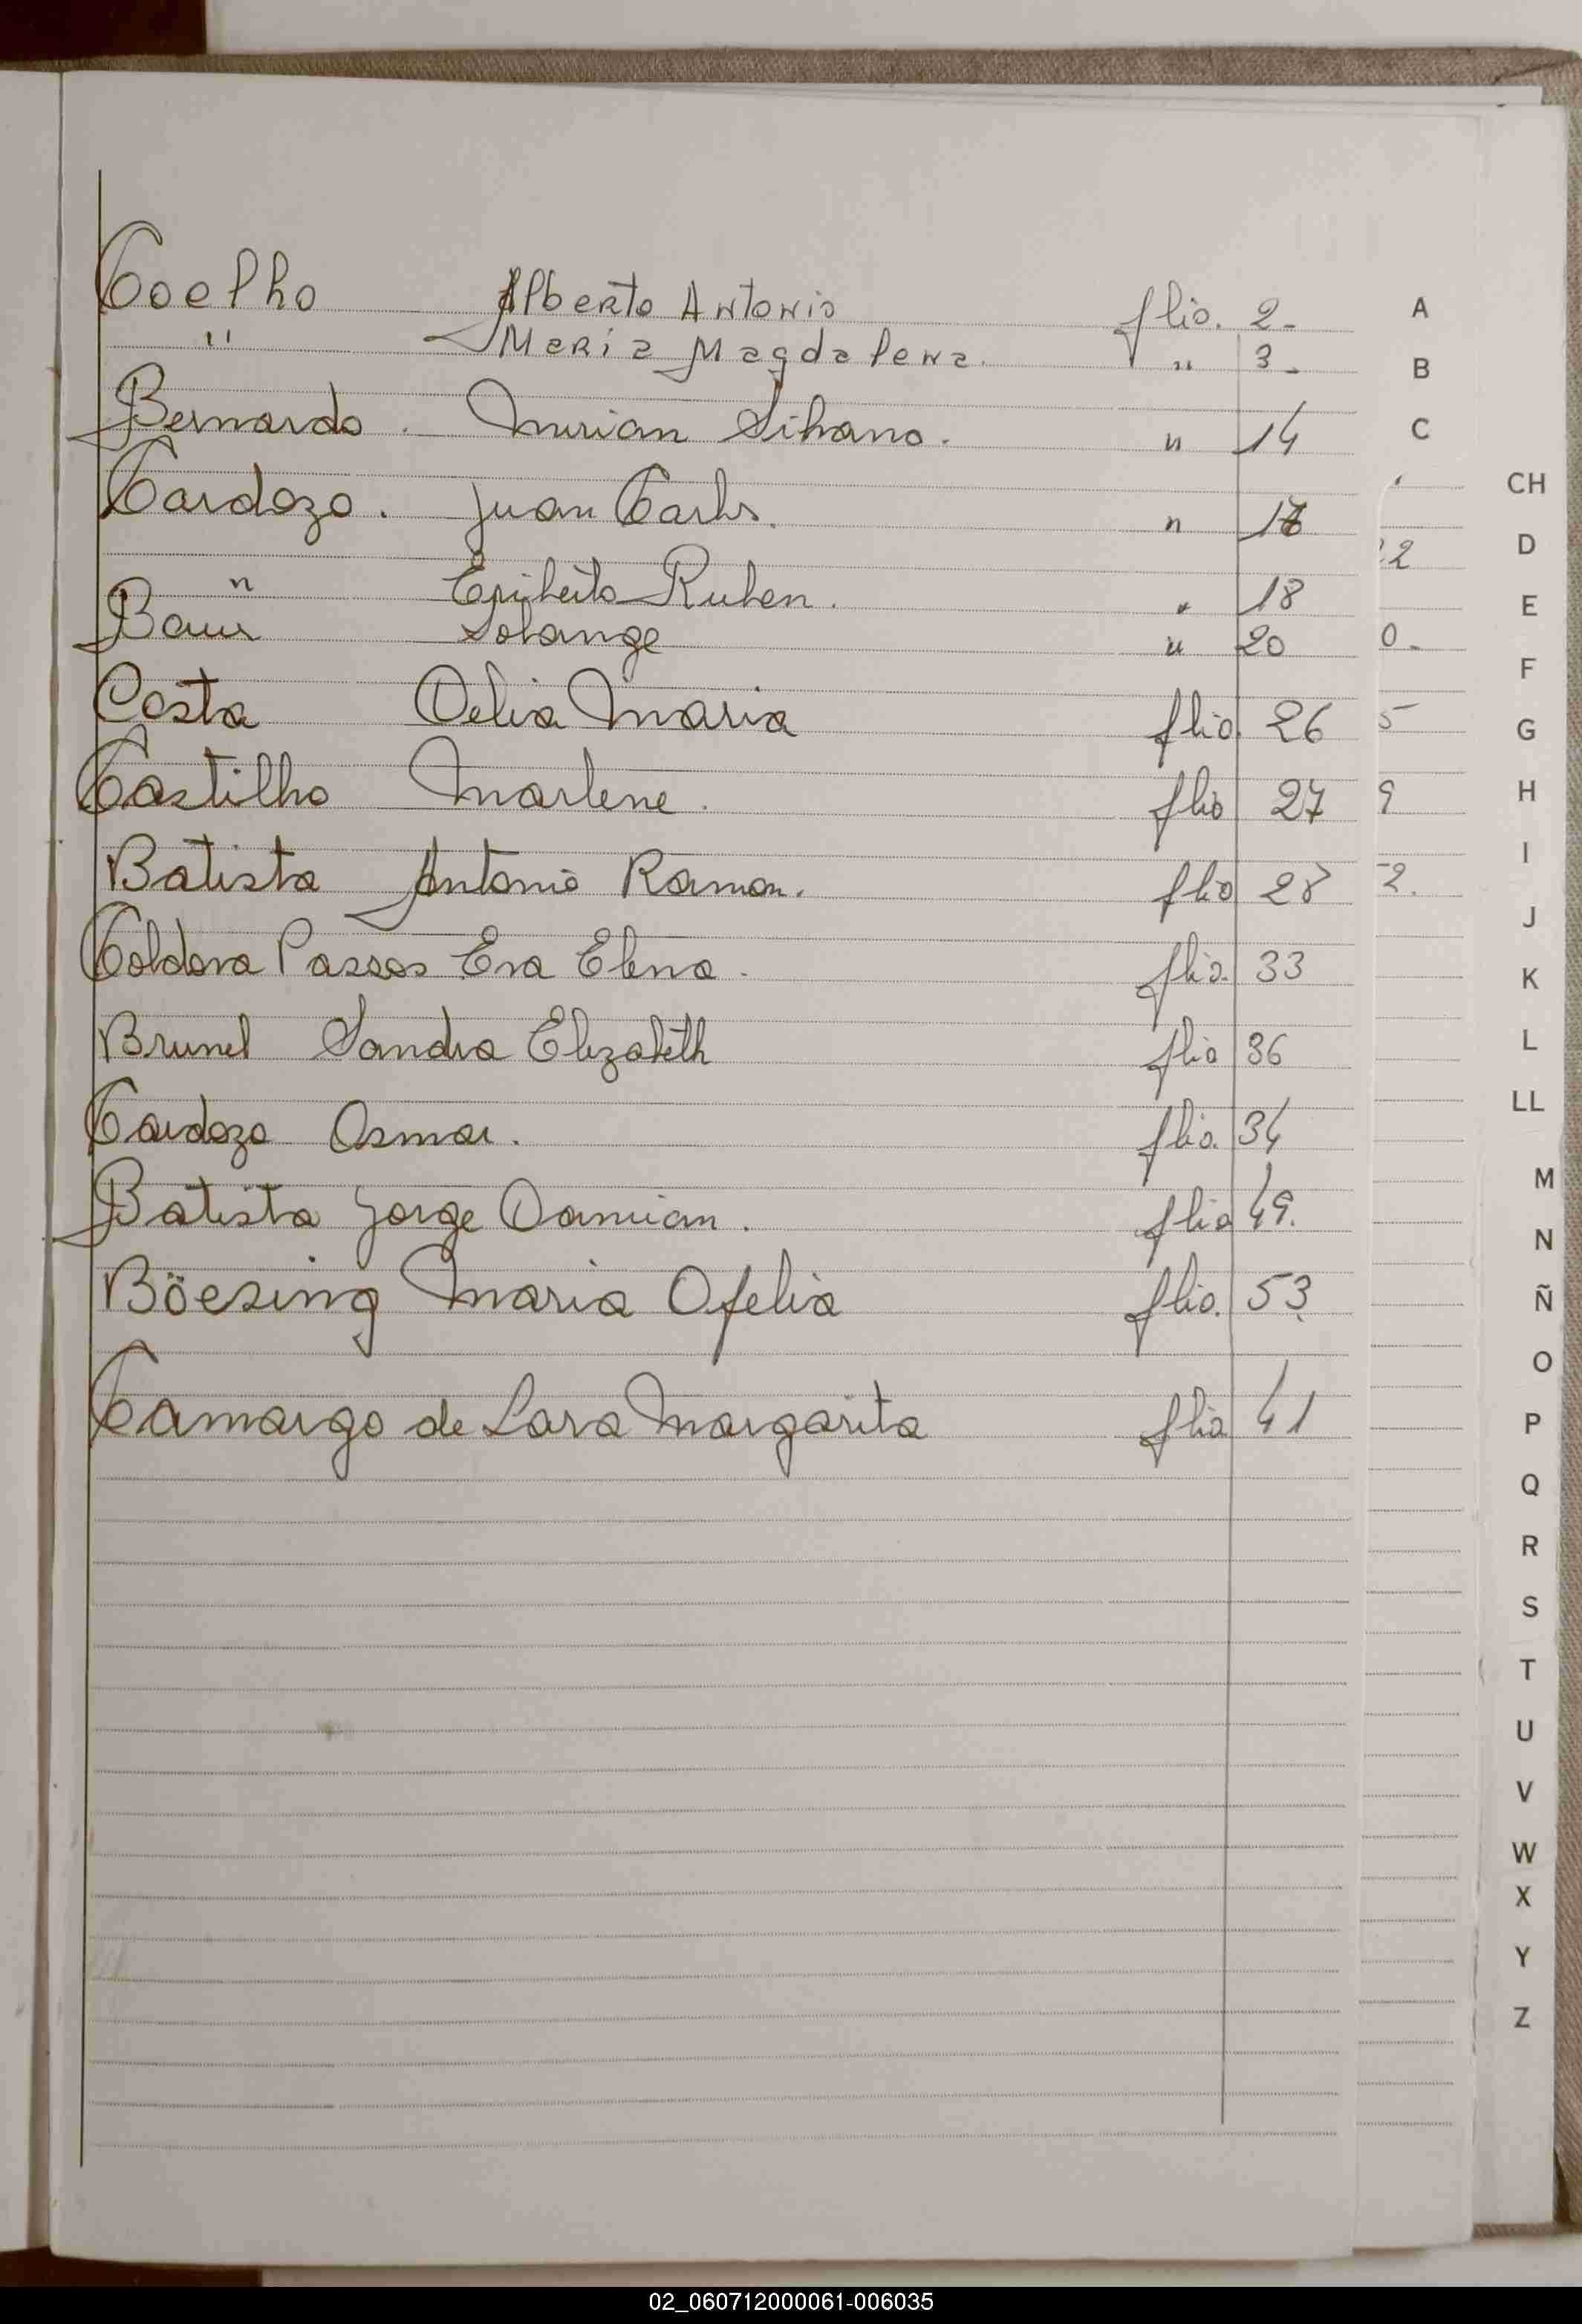 Coelho Alberto Antonio flio. 2-
" Maria Magdalena. " 3-
Bernardo. Mirian Silvano. " 14
Cardozo. Juan Carlos. " 17
" Eriberto Ruben. " 18
Solange " 20
Costa Delia Maria flio. 26
Castilho Marlene. flio 27
Batista Antonio Ramon. flio 28
Coldova Passos Eva Elena. flio. 33
Brunel Sandra Elizabeth flio 36
Cardozo Osmar. flio. 34
Batista Jorge Damian. flio 49.
Böesing Maria Ofelia flio. 53.
Camargo de Lara Margarita flio 41
A
B
C
CH
D
E
F
G
H
I
J
K
L
LL
M
N
Ñ
O
P
Q
R
S
T
U
V
W
X
Y
Z
2
0-
5
9
2.
02_060712000061-006035